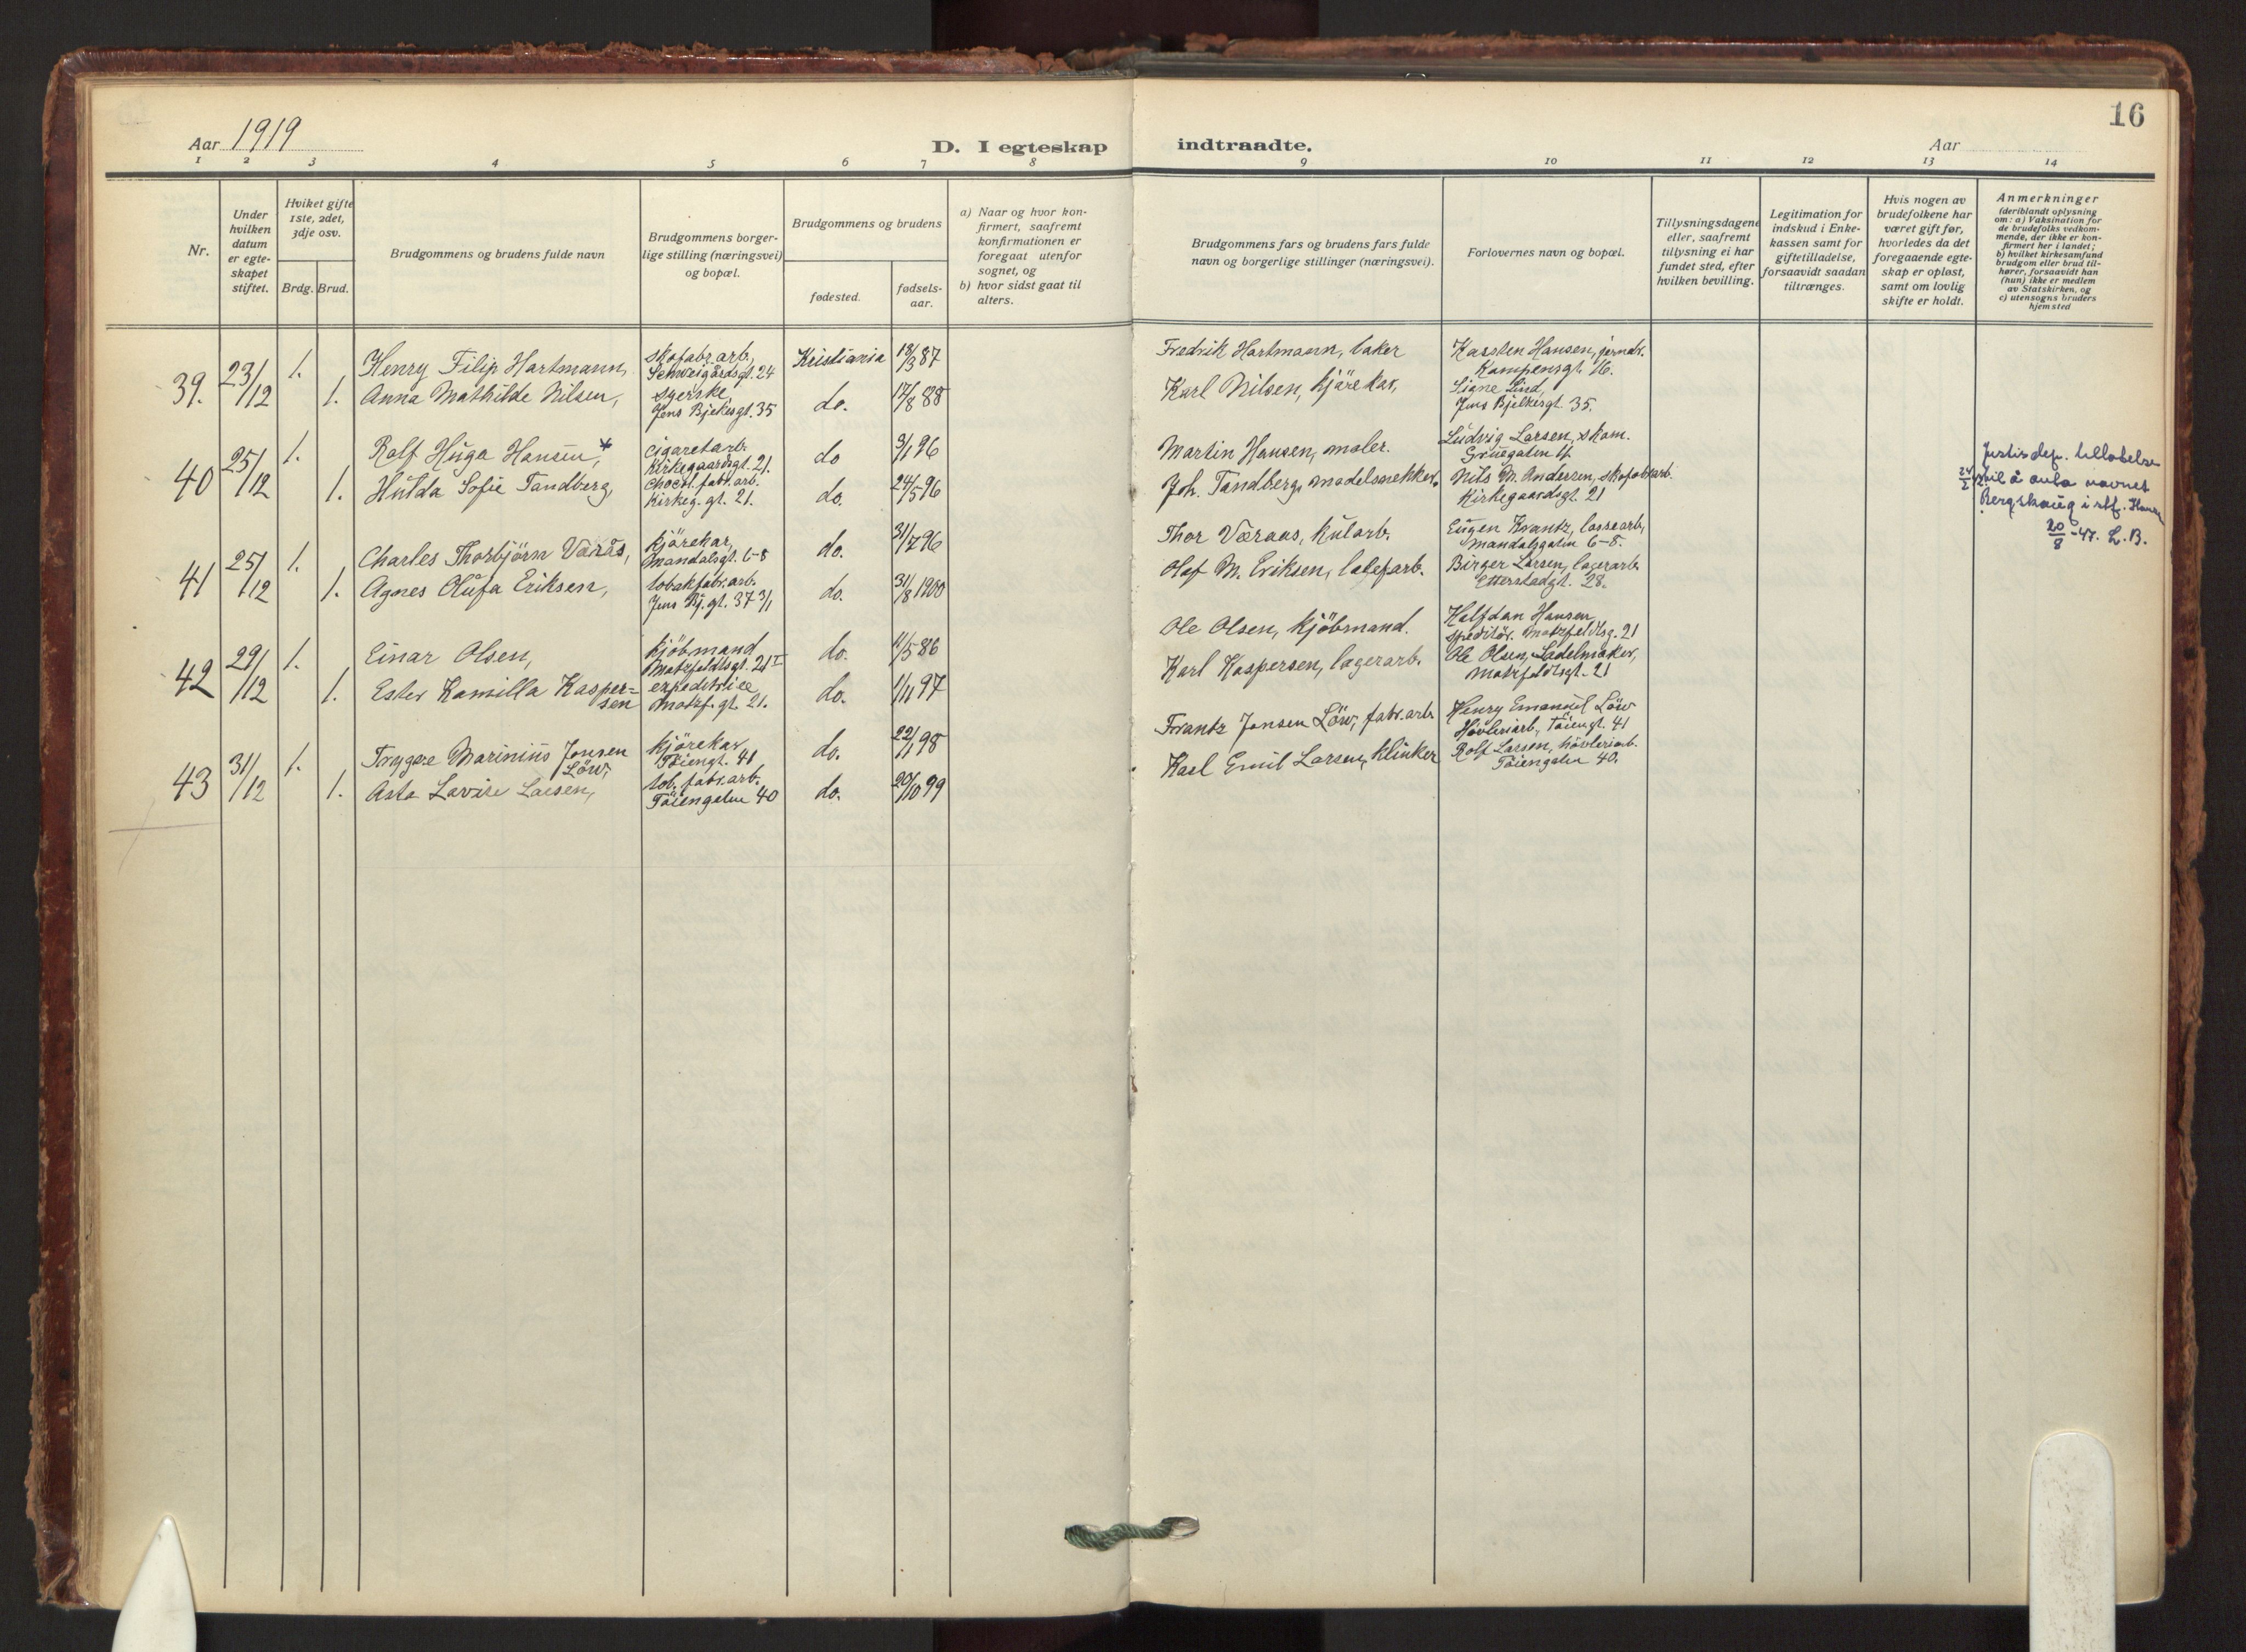 16
Aar 1919
D. I egteskap indtraadte.
Aar
1 2 3 4 5 6 7 8 9 10 11 12 13 14
Nr.
Under
hvilken
datum
er egte-
skapet
stiftet.
Hviket gifte
1ste, 2det,
3dje osv.
Brdg. Brud.
Brudgommens og brudens fulde navn
Brudgommens borger-
lige stilling (næringsvei)
og bopæl.
Brudgommens og brudens
fødested.
fødsels-
aar.
a) Naar og hvor kon-
firmert, saafremt
konfirmationen er
foregaat utenfor
sognet, og
b) hvor sidst gaat til
alters.
Brudgommens fars og brudens fars fulde
navn og borgerlige stillinger (næringsvei).
Forlovernes navn og bopæl.
Tillysningsdagene
eller, saafremt
tillysning ei har
fundet sted, efter
hvilken bevilling.
Legitimation for
indskud i Enke-
kassen samt for
giftetilladelse,
forsaavidt saadan
tiltrænges.
Hvis nogen av
brudefolkene har
været gift før,
hvorledes da det
foregaaende egte-
skap er opløst,
samt om lovlig
skifte er holdt.
Anmerkninger
(deriblandt oplysning
om: a) Vaksination for
de brudefolks vedkom-
mende, der ikke er kon-
firmert her i landet;
b) hvilket kirkesamfund
brudgom eller brud til-
hører, forsaavidt han
(hun) ikke er medlem
av Statskirken, og
c) utensogns bruders
hjemsted
39. 23/12 1. Henry Filip Hartmann,
skofabr. arb.,
Schweigårdsgt. 24
Kristiania 18/3 87
Fredrik Hartmann, baker
Karsten Hansen, jerndr.
Kampensgt. 16.
1. Anna Mathilde Nilsen,
syerske
Jens Bjelkesgt. 35
do. 17/8 88
Karl Nilsen, kjörekar,
Signe Lind,
Jens Bjelkesgt. 35.
40 25/12 1. Rolf Hugo Hansen,
cigaretarb.
Kirkegaardsgt. 21.
do 3/1 96
Martin Hansen, maler.
Ludvig Larsen, skom.
Gruegaten 4.
1. Hulda Sofie Tandberg,
chocol. fabr. arb.
Kirkeg. gt. 21.
do. 24/5 96
Joh. Tandberg, modelsnekker.
Nils M. Andersen, skofabrarb.
Kirkegaardsgt. 21
Justisdep. tillatelse
24/2 til å anta navnet
Bergskaug i stf. Hansen
20/8 -47. L. B.
41 25/12 1. Charles Thorbjörn Værås,
kjörekar,
Mandalsgt. 6-8
do. 31/7 96
Thor Væraas, kularb.
Eugen Krantz, lossearb,
Mandalsgaten 6-8.
1. Agnes Olufa Eriksen,
tobakfabr. arb.
Jens Bj. gt. 37 3/1
do. 31/8 1900
Olaf M. Eriksen,
Birger Larsen, lagerarb.
Etterstadgt. 28.
42 29/12 1. Einar Olsen,
kjöbmand
Motzfeldtsgt. 21 I
do. 11/5 86
Ole Olsen, kjöbmand.
Halfdan Hansen
speditör. Motzfeldtsg. 21
1. Ester Kamilla Kasper=
sen
expeditrice
Motzf. gt. 21.
do. 1/11 97
Karl Kaspersen, lagerarb.
Ole Olsen, Sadelmaker,
Motzfeldtsgt. 21
43 31/12 1. Trygve Marinius Jonsen
Löw,
kjörekar
Töiengt. 41
do. 22/1 98
Frantz Jonsen Löw, fabr. arb
Henry Emanuel Löw
Hövleriarb., Töiengt. 41
1. Asta Lovise Larsen,
tob. fabr. arb.
Töiengaten 40
do. 20/10 99
Karl Emil Larsen, klinker
Rolf Larsen, hövleriarb.
Töiengaten 40.